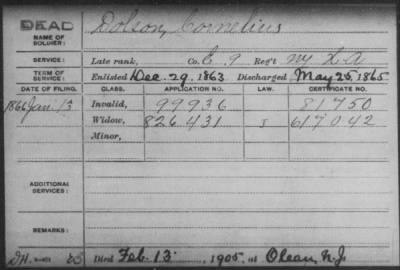 DEAD
NAME OF SOLDIER: Dolson, Cornelius
SERVICE: Late rank, Co. C. 9 Reg't NY H A
TERM OF SERVICE: Enlisted Dec. 29, 1863 Discharged May 25, 1865
DATE OF FILING. CLASS. APPLICATION NO. LAW. CERTIFICATE NO.
1866 Jan. 13 Invalid, 99936 81750
Widow, 826431 617042
Minor,
ADDITIONAL SERVICES:
REMARKS:
Died Feb. 13 1905, at Olean, N.Y.